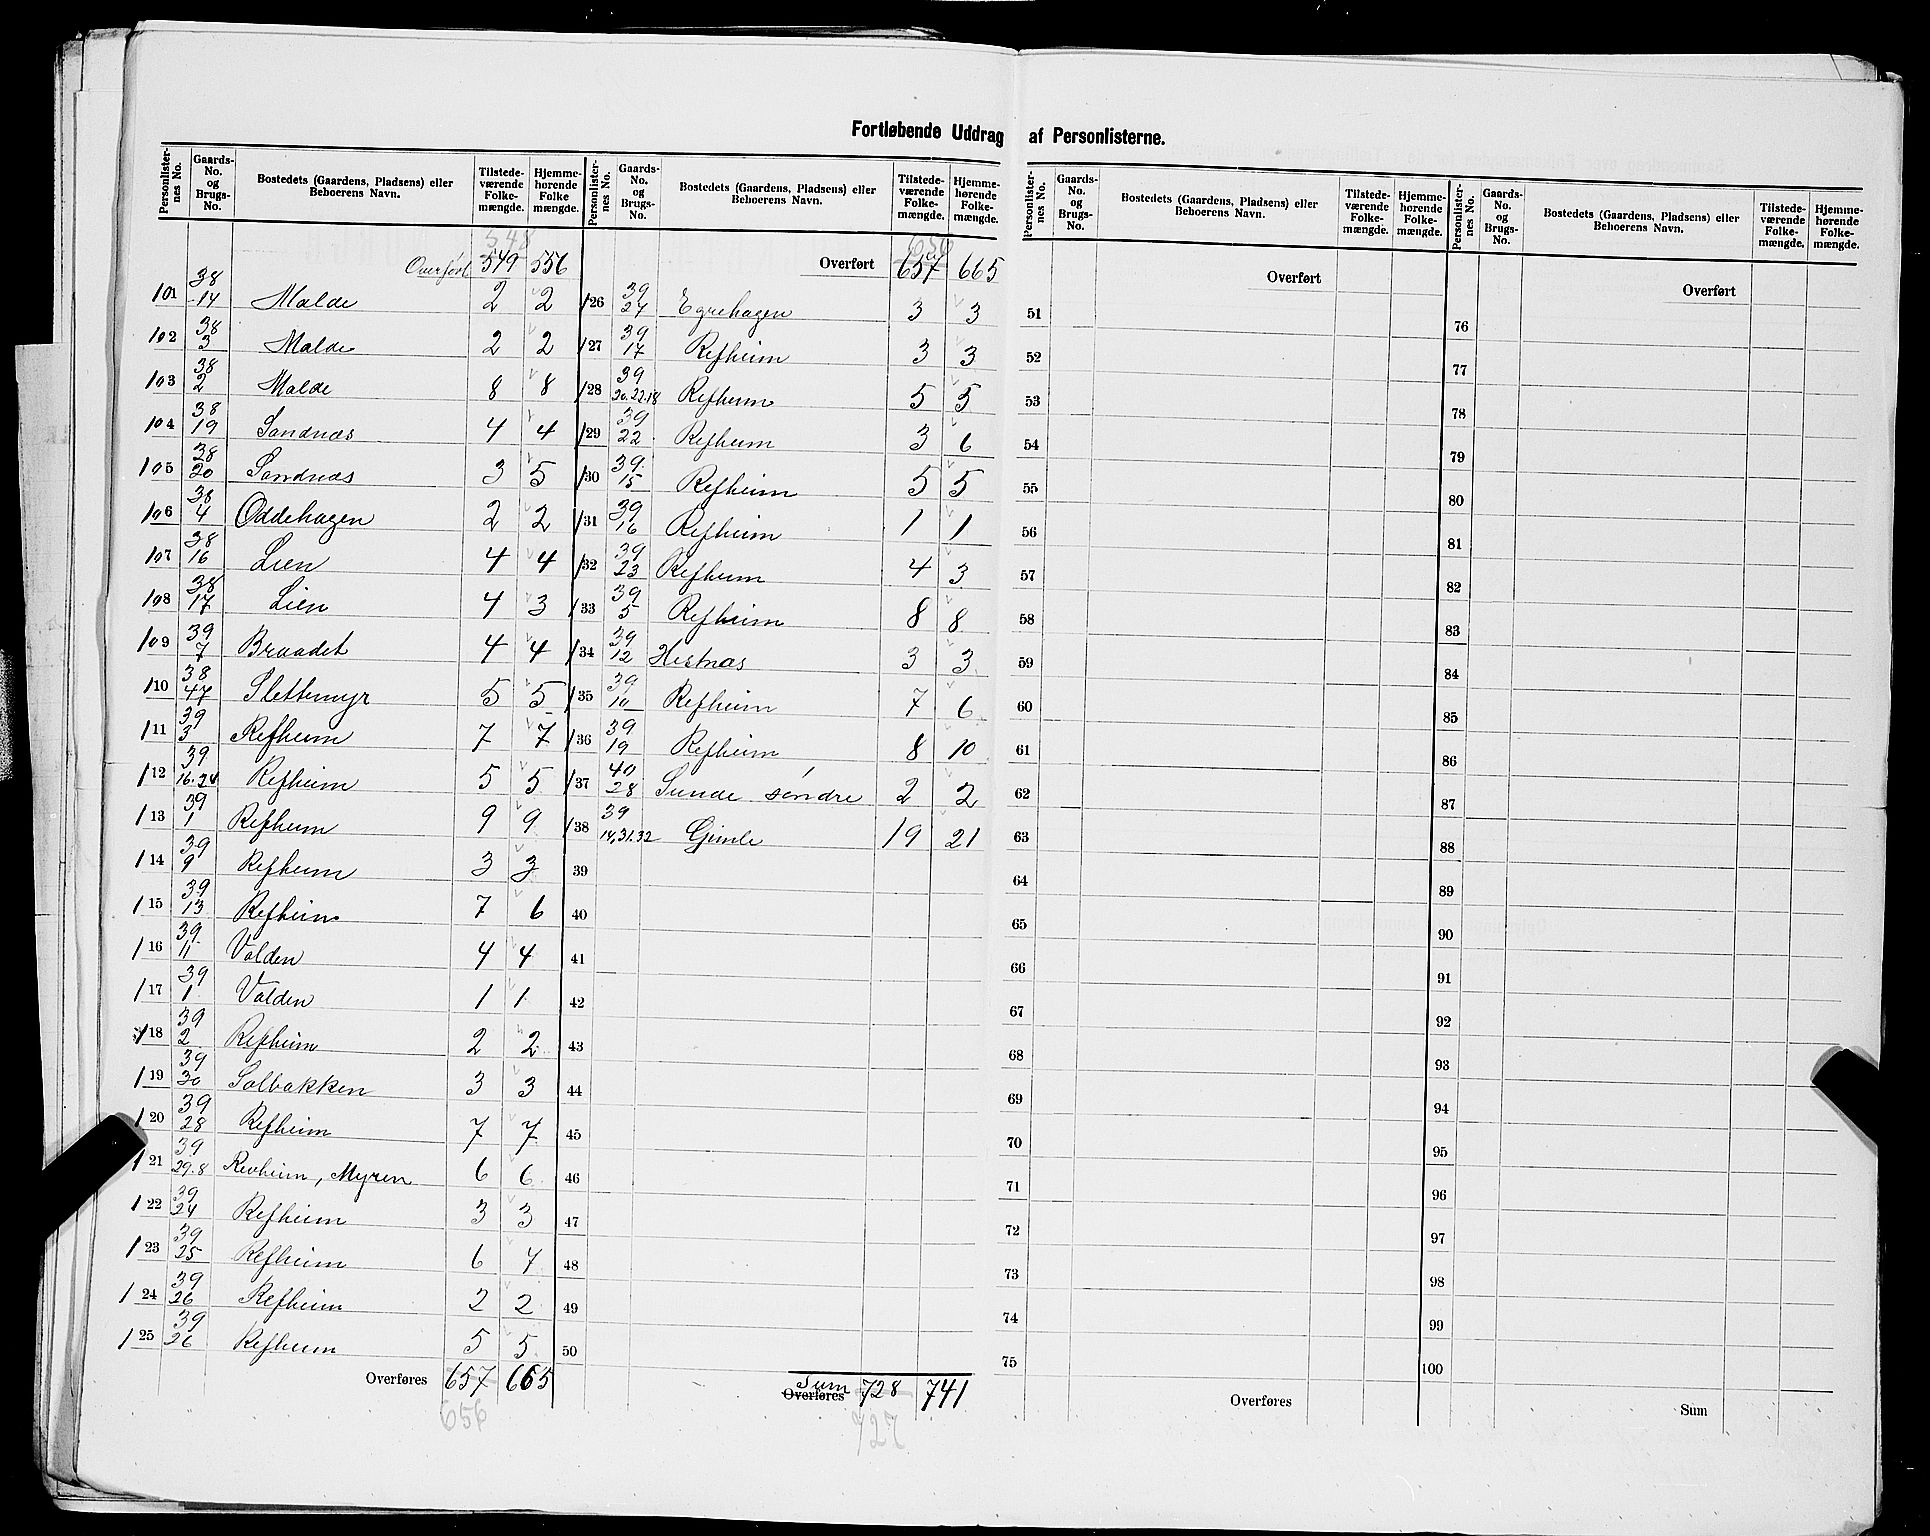 Fortløbende Uddrag af Personlisterne.
Personlisternes No. Gaards-No. og Brugs-No. Bostedets (Gaardens, Pladsens) eller Beboerens Navn. Tilstedeværende Folkemængde. Hjemmehørende Folkemængde.
548
Overført 549 556
101 38/14 Malde 2 2
102 38/3 Malde 2 2
103 38/2 Malde 8 8
104 38/19 Sandnæs 4 4
105 38/20 Sandnæs 3 5
106 38/4 Oddehagen 2 2
107 38/16 Lien 4 4
108 38/17 Lien 4 3
109 39/7 Braadet 4 4
110 38/47 Slettemyr 5 5
111 39/3 Refheim 7 7
112 39/16.24 Refheim 5 5
113 39/1 Refheim 9 9
114 39/9 Refheim 3 3
115 39/13 Refheim 7 6
116 39/11 Volden 4 4
117 39/1 Volden 1 1
118 39/2 Refheim 2 2
119 39/30 Solbakken 3 3
120 39/28 Refheim 7 7
121 39/29.8 Revheim, Myren 6 6
122 39/24 Refheim 3 3
123 39/25 Refheim 6 7
124 39/26 Refheim 2 2
125 39/26 Refheim 5 5
Overføres 657 665
656
Personlisternes No. Gaards-No. og Brugs-No. Bostedets (Gaardens, Pladsens) eller Beboerens Navn. Tilstedeværende Folkemængde. Hjemmehørende Folkemængde.
656
Overført 657 665
126 39/27 Egrehagen 3 3
127 39/17 Refheim 3 3
128 39/30.22.18 Refheim 5 5
129 39/22 Refheim 3 6
130 39/15 Refheim 5 5
131 39/16 Refheim 1 1
132 39/23 Refheim 4 3
133 39/5 Refheim 8 8
134 39/12 Hestnæs 3 3
135 39/10 Refheim 7 6
136 39/19 Refheim 8 10
137 40/28 Sunde søndre 2 2
138 39/14,31.32 Gimle 19 21
39
40
41
42
43
44
45
46
47
48
49
50
Sum
Overføres 728 741
727
Personlisternes No. Gaards-No. og Brugs-No. Bostedets (Gaardens, Pladsens) eller Beboerens Navn. Tilstedeværende Folkemængde. Hjemmehørende Folkemængde.
Overført
51
52
53
54
55
56
57
58
59
60
61
62
63
64
65
66
67
68
69
70
71
72
73
74
75
Overføres
Personlisternes No. Gaards-No. og Brugs-No. Bostedets (Gaardens, Pladsens) eller Beboerens Navn. Tilstedeværende Folkemængde. Hjemmehørende Folkemængde.
Overført
76
77
78
79
80
81
82
83
84
85
86
87
88
89
90
91
92
93
94
95
96
97
98
99
100
Sum